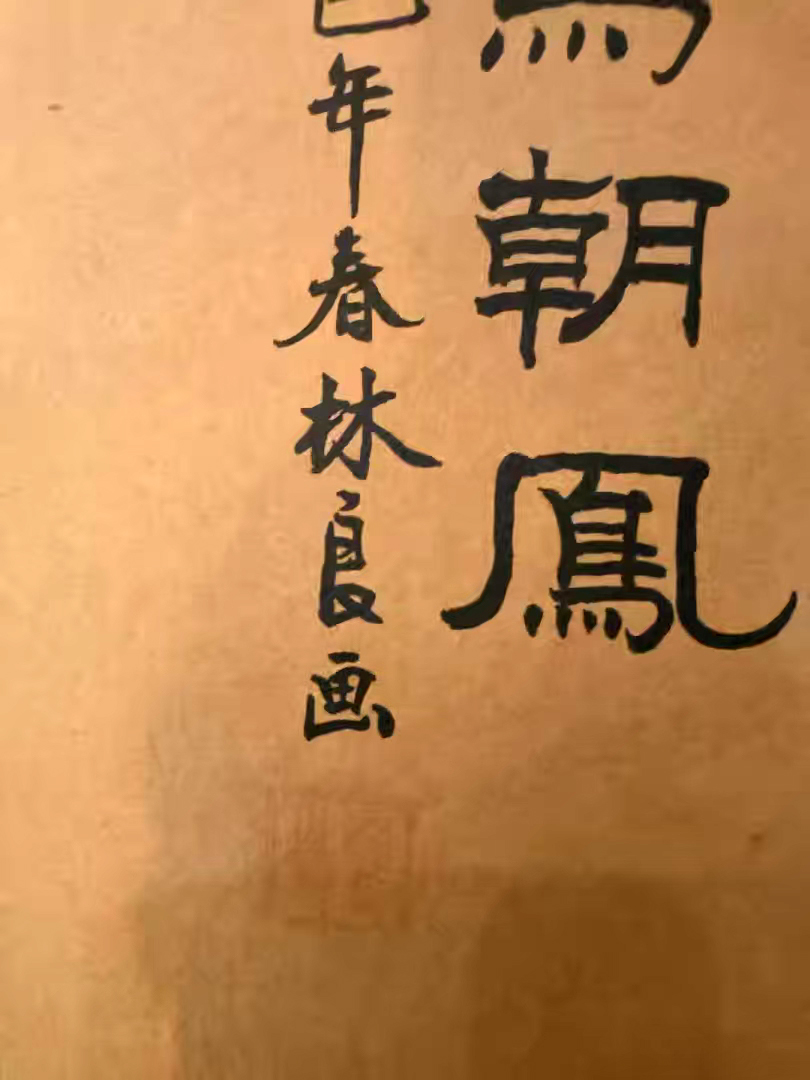 朝鳳
年春林良画